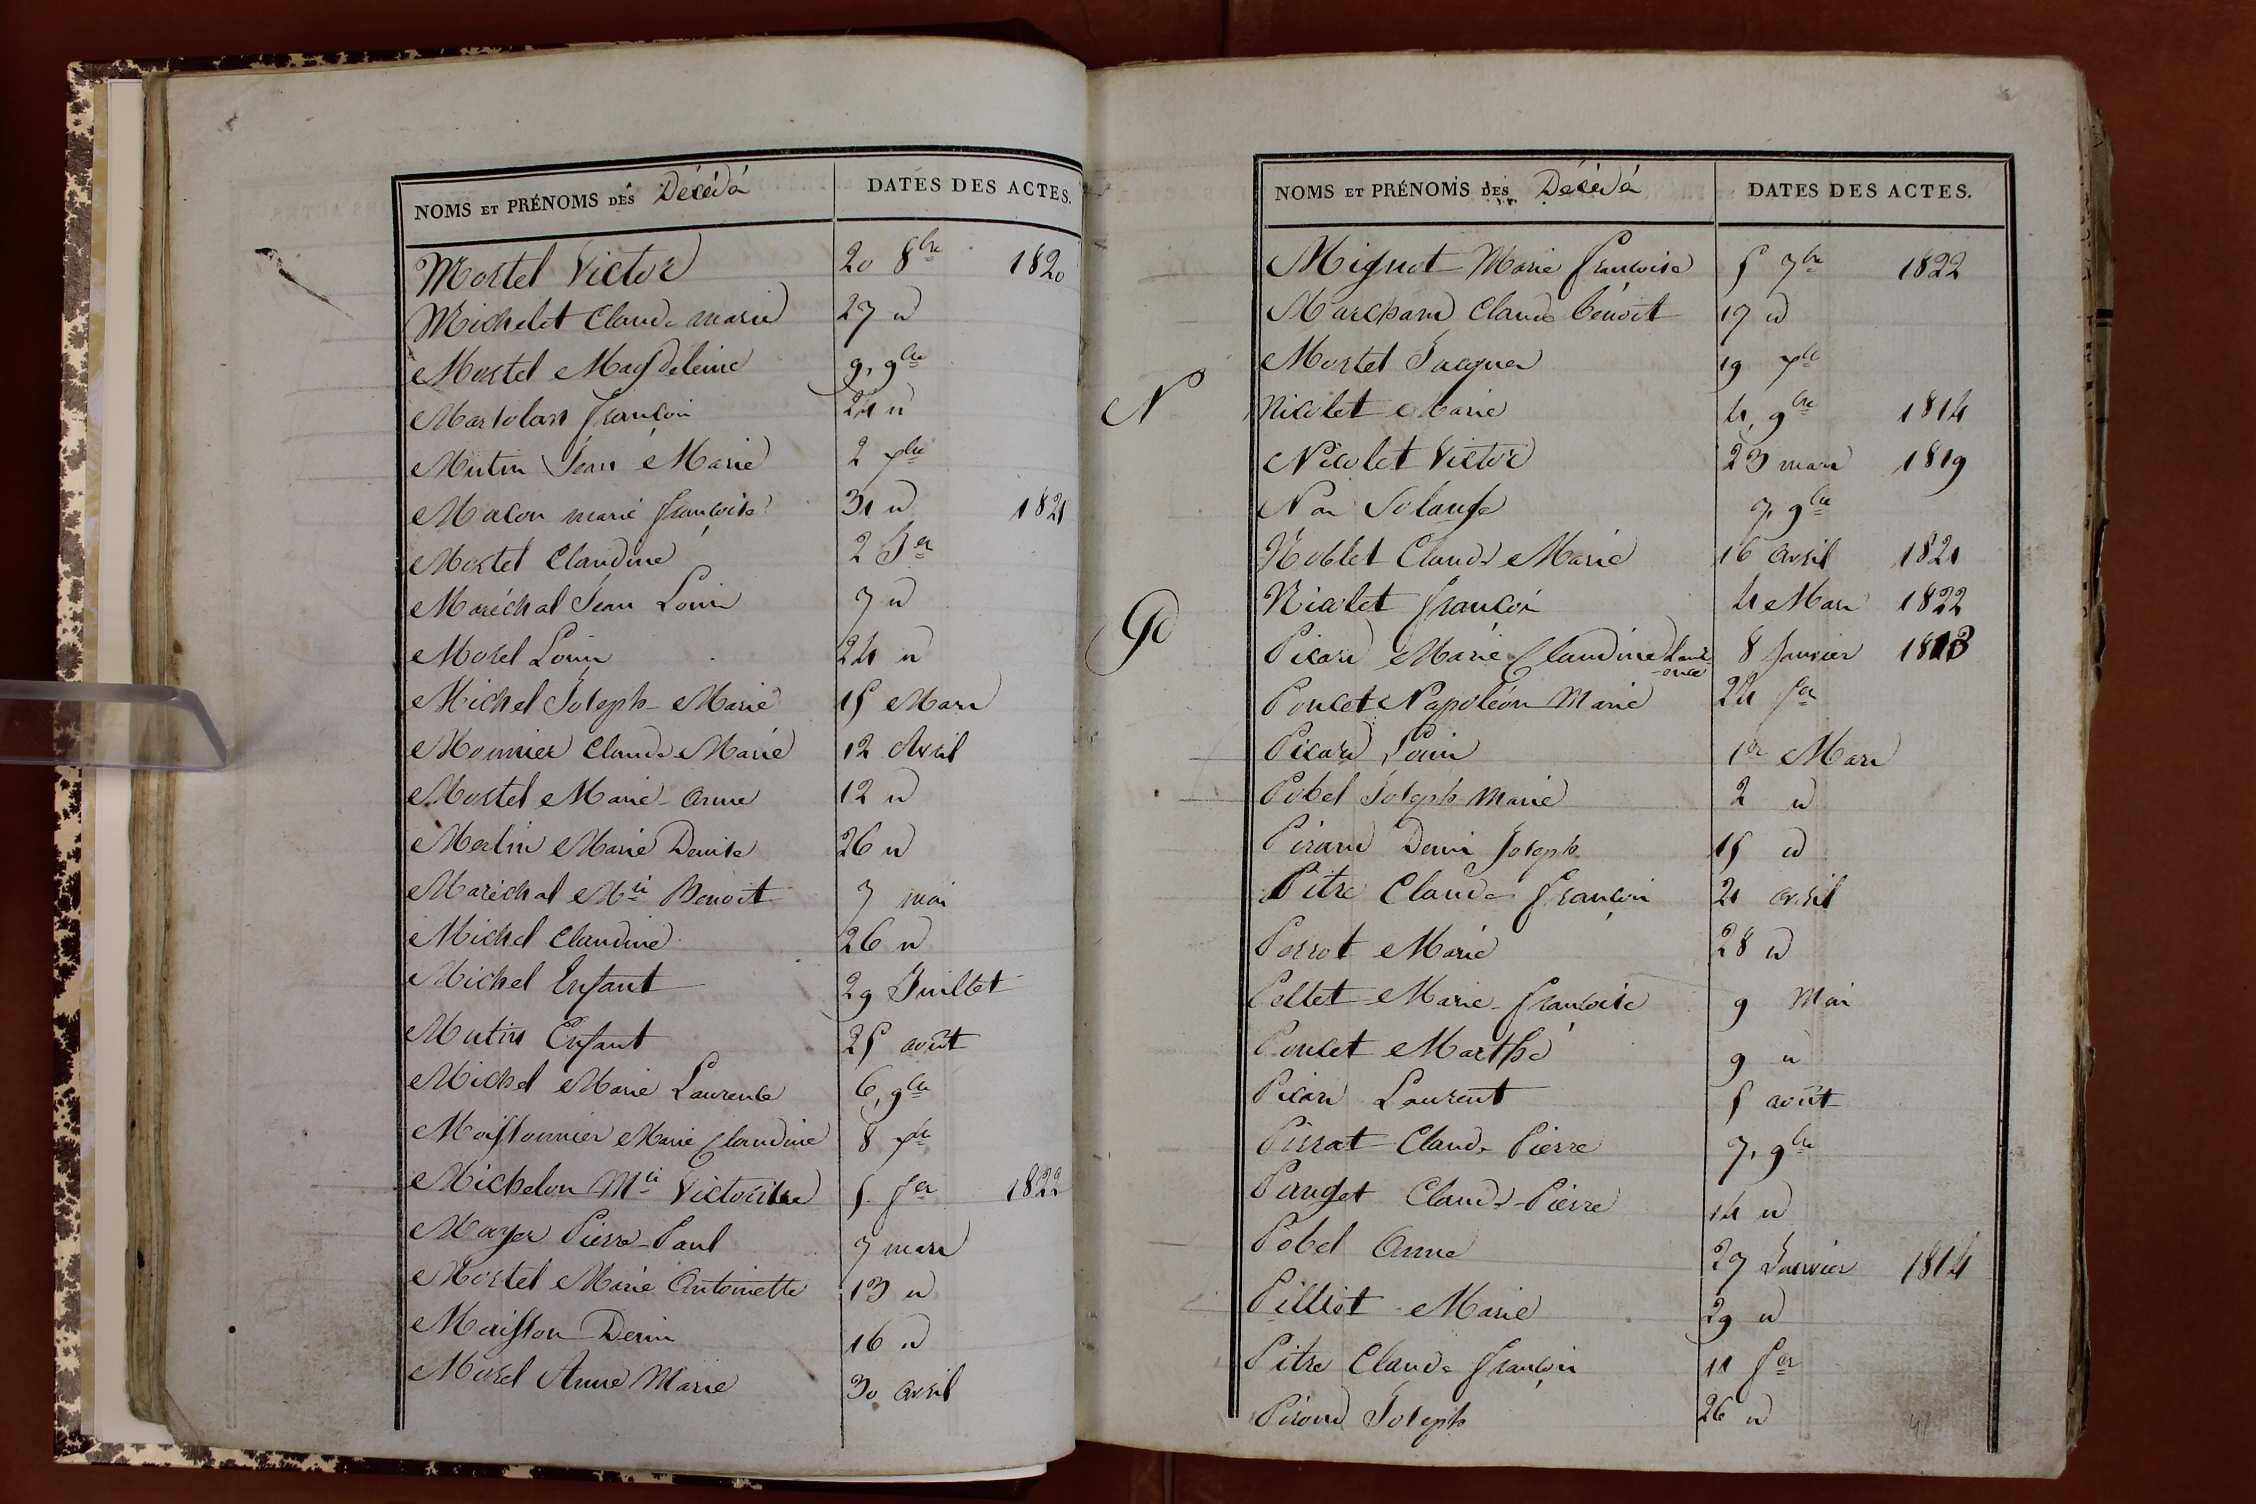 NOMS ET PRÉNOMS DES Décédés DATES DES ACTES.
Mostel Victor 20 8bre 1820
Michelet Claude marie 27 id
Mostel Magdeleine 9, 9bre
Martolan françois 24 id
Mutin Jean Marie 2 xbre
Macon marie françoise 31 id 1821
Mostel Claudine 2 Jer
Maréchal Jean Louis 7 id
Morel Louis 24 id
Michel Joseph Marie 15 Mars
Monnier Claude Marie 12 Avril
Mostel Marie anne 12 id
Merlin Marie Denise 26 id
Maréchal Mrie Benoit 7 mai
Michel Claudine 26 id
Michel Enfant 29 Juillet
Mutin Enfant 25 août
Michel Marie Laurence 6, 9bre
Moissonnier Marie Claudine 8 xbre
Michelon Mrie Victoire 5 fer 1822
Mayer Pierre Paul 7 mars
Mostel Marie Antoinette 13 id
Maisson Denis 16 id
Morel Anne Marie 30 avril
NOMS ET PRÉNOMS DES Décédés DATES DES ACTES.
Mignot Marie françoise 5 7bre 1822
Marchand Claude benoit 17 id
Mostel Jacques 19 xbre
N Nicolet Marie 4, 9bre 1814
Nicolet Victor 23 mars 1819
Solange 7, 9bre
Noblet Claude Marie 16 avril 1821
Nicolet françois 4 Mars 1822
P Picard Marie Claudine Laur-
-ence 8 Janvier 1813
Poncet Napoléon Marie 24 fer
Picard Louis 1er Mars
Pobel Joseph Marie 2 id
Piroud Denis Joseph 15 id
Pitre Claude françois 21 avril
Perrot Marie 28 id
Pellet Marie françoise 9 Mai
Poncet Marthe 9 id
Picard Laurent 5 août
Pirrat Claude Pierre 7, 9bre
Panget Claude Pierre 14 id
Pobel Anne 27 Janvier 1814
Pilliot Marie 29 id
Pitre Claude françois 11 fer
Piroud Joseph 26 id